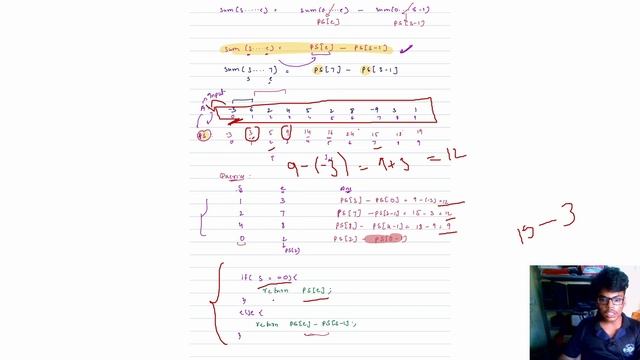 sum(s....e) = sum(0....e) - sum(0...s-1)
PS[e] PS[s-1]
sum(s....e) = PS[e] - PS[s-1]
sum(3....7) = PS[7] - PS[3-1]
s e
Input
A -3 6 2 4 5 2 8 -9 3 1
0 1 2 3 4 5 6 7 8 9
PS -3 3 5 9 14 16 24 15 18 19
0 1 2 3 4 5 6 7 8 9
9-(-3) = 9+3 = 12
Queries:
s e Ans
1 3 PS[3] - PS[0] = 9-(-3) = 12
2 7 PS[7] - PS[2-1] = 15-3 = 12
4 8 PS[8] - PS[4-1] = 18-9 = 9
0 2 PS[2] - PS[0-1]
PS[2]
15-3
if( s ==0){
return PS[e];
}
else {
return PS[e] - PS[s-1];
}